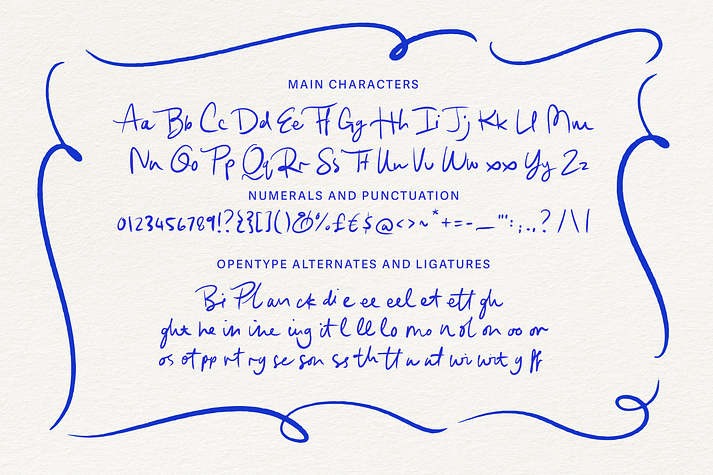 MAIN CHARACTERS
Aa Bb Cc Dd Ee Ff Gg Hh Ii Jj Kk Ll Mm
Nn Oo Pp Qq Rr Ss Tt Uu Vv Ww xx Yy Zz
NUMERALS AND PUNCTUATION
0123456789!?{}[]()&%£€$@<>~*+=-—"':;.,.? / \ |
OPENTYPE ALTERNATES AND LIGATURES
Bi Pl an ck di e ee eel et ett gh
ght he in ine ing it l ll lo mo n ol on oo or
os ot pp rt ry se son ss th tt u ut wi wit y ff